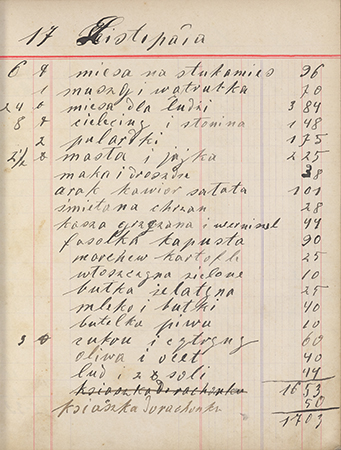 17 Listopada
6 ℔ miesa na stukamies 96
1 muszgi wątrubka 70
24 ℔ miesa dla ludzi 3 84
8 ℔ cieleciny i stonina 1 48
2 pulardki 1 75
2 1/2 ℔ masta i jajka 2 25
maka i drozdze 28
arak kawior satata 1 01
śmietana chrzan 28
kasza gryczana i 44
fasolka kapusta 90
marchew kartofli 25
włoszczyzna zielone 10
butka żelatyna 25
mleko i butki 40
butelka piwa 10
3 ℔ cukru i cytryny 60
oliwa i ocet 40
lud i soli 44
ksiaszka dorachonku 16 53
ksiaszka dorachonku 50
1703